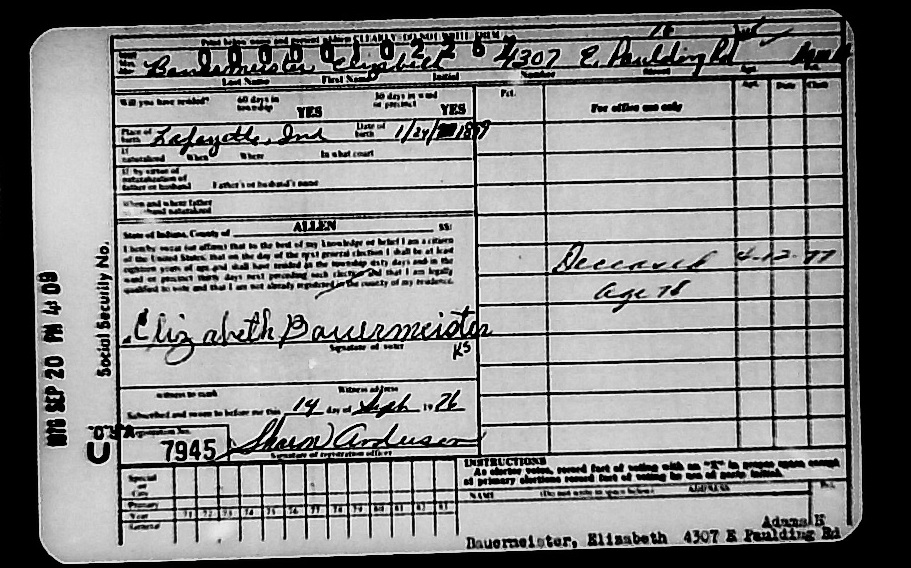 Print below name and present address CLEARLY. DO NOT WRITE FIRM
0000010226
Bauermeister Elizabeth 4307 E. Paulding Rd
Last Name First Name Initial Number Street Apt.
Will you have resided? 60 days in township YES 30 days in ward or precinct YES
Pct. For office use only Apt. Date Clerk
Place of birth Lafayette, Ind Date of birth 1/24/1899
If naturalized When Where In what court
If by virtue of naturalization of father or husband Father's or husband's name
When and where father or husband naturalized
State of Indiana, County of ALLEN SS:
I hereby swear (or affirm) that to the best of my knowledge or belief I am a citizen
of the United States, that on the day of the next general election I shall be at least
eighteen years of age and shall have resided in the township sixty days and in the
ward or precinct thirty days next preceding such election and that I am legally
qualified to vote and that I am not already registered in the county of my residence.
Deceased 4-12-77
age 78
Elizabeth Bauermeister
Signature of voter
KS
Witness to mark Witness address
Subscribed and sworn to before me this 14 day of Sept. 1976
Registration No.
7945
Sharon Anderson
Signature of registration officer
Social Security No.
1976 SEP 20 PM 4:09
U
Special or City
Primary
Year 71 72 73 74 75 76 77 78 79 80 81 82 83
General
INSTRUCTIONS
As elector votes, record fact of voting with an "X" in proper space except
at primary elections record fact of voting by use of party initial.
NAME (Do not write in space below) ADDRESS Pct.
Adams K
Bauermeister, Elizabeth 4307 E Paulding Rd